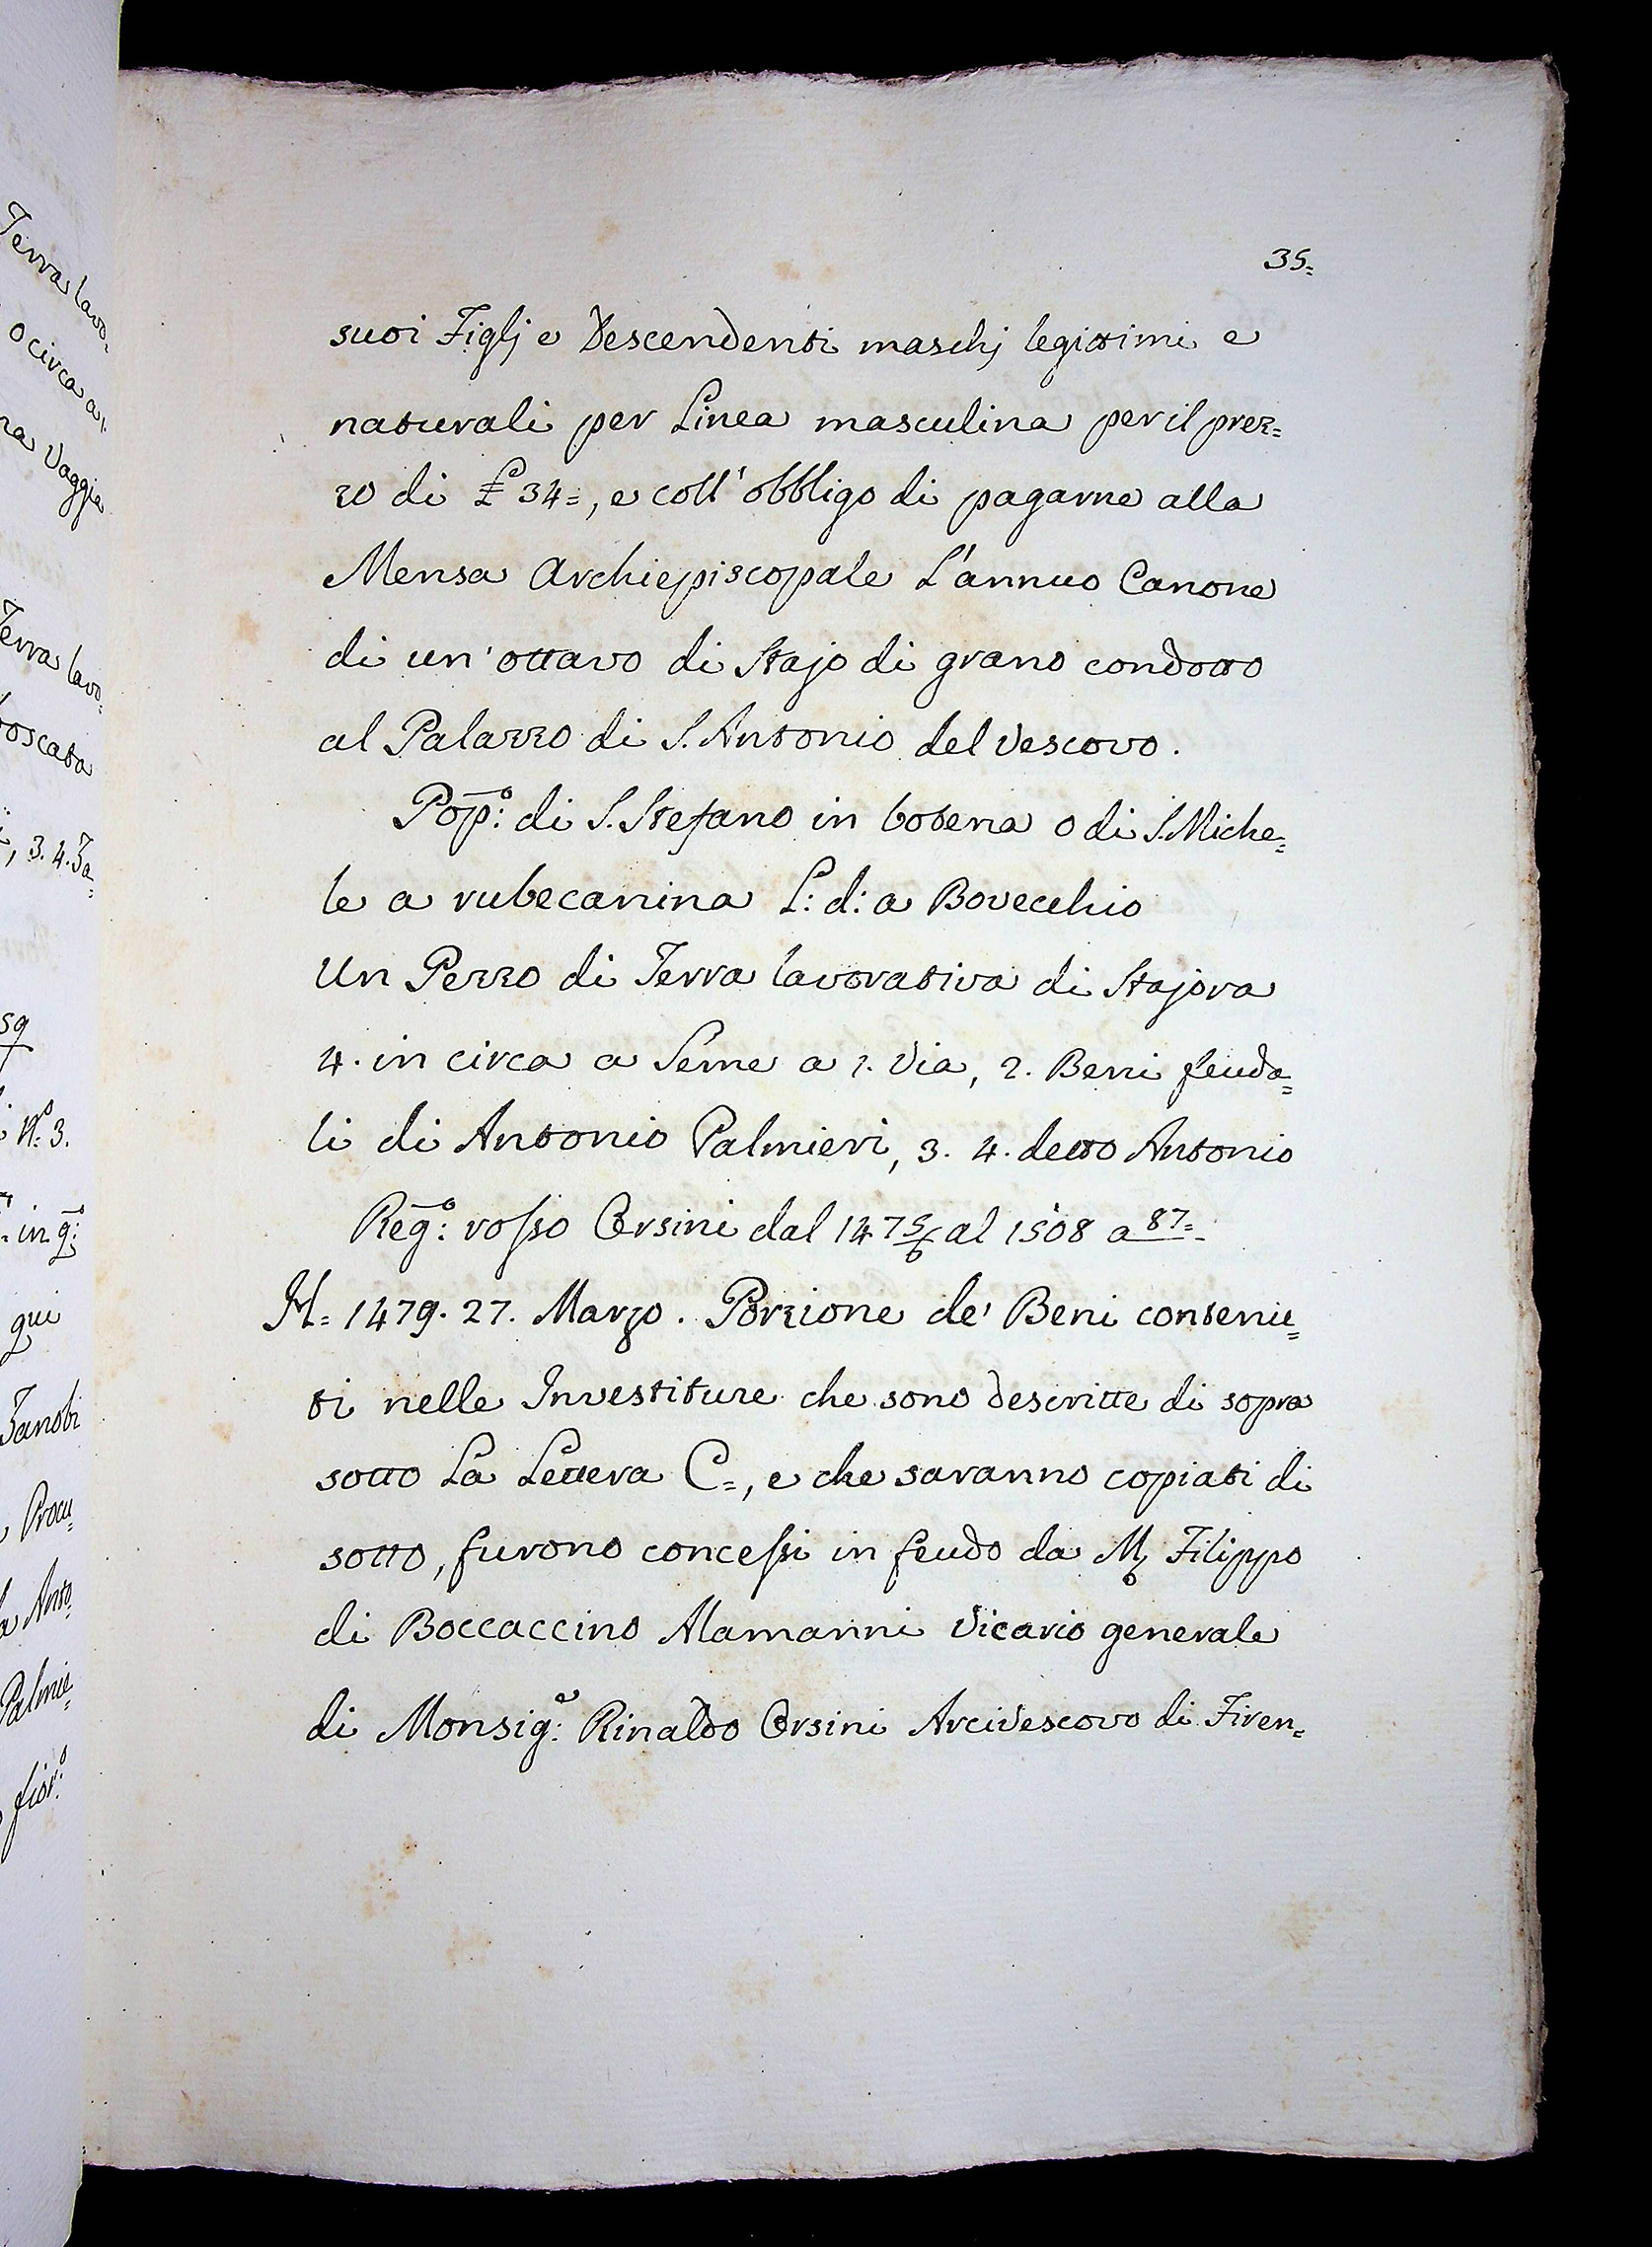 35=
suoi Figlj e Descendenti maschj legittimi e
naturali per Linea masculina per il prez=
zo di £ 34=, e coll'obbligo di pagarne alla
Mensa Archiepiscopale L'annuo Canone
di un'ottavo di Stajo di grano condotto
al Palazzo di S. Antonio del Vescovo.
Pop.º di S. Stefano in botena o di S. Miche=
le a rubecanina L: d: a Bovecchio
Un Pezzo di Terra lavorativa di Stajora
4. in circa a Seme a 1. Via, 2. Beni feuda=
li di Antonio Palmieri, 3. 4. detto Antonio
Reg.º rosso Orsini dal 1475/6 al 1508 a 87=
H= 1479. 27. Marzo. Porzione de' Beni contenu=
ti nelle Investiture che sono descritte di sopra
sotto La Lettera C=, e che saranno copiati di
sotto, furono concessi in feudo da M. Filippo
di Boccaccino Alamanni Vicario generale
di Monsig.e Rinaldo Orsini Arcivescovo di Firen=
Terra lavo=
o circa a 1.
na Vaggia
Terra lavo=
boscata
, 3. 4. Za=
59
N.º 3.
in q.º
qui
Zanobi
Procu=
a Anto=
Palmie=
fior.º